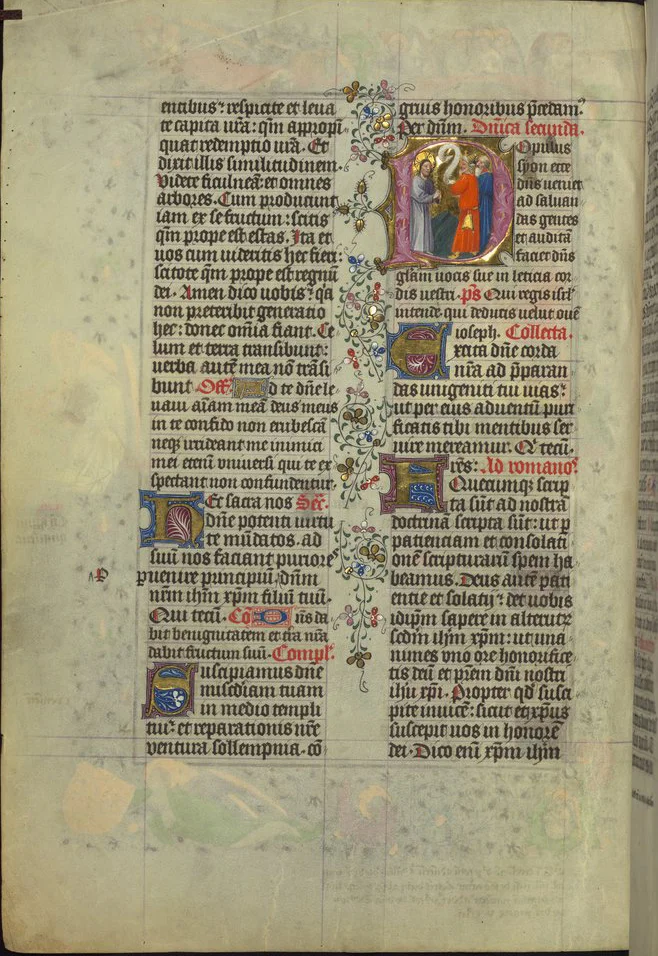 entibus: respicite et leua
te capita vr̄a: qm̄ appropī
quat redemptio vr̄a. Et
dixit illis similitudinem.
Videte ficulneā: et omnes
arbores. Cum producunt
iam ex se fructum: scitis
qm̄ prope est estas. Ita et
uos cum uideritis hec fieri:
scitote qm̄ prope est regnū
dei. Amen dico uobis: qͥa
non preteribit generatio
hec: donec om̄ia fiant. Ce
lum et terra transibunt:
uerba autē mea nō trāsi
bunt. Off. Ad te dn̄e le
uaui aīam meā deus meus
in te confido non erubescā
neqꝫ irrideant me inimici
mei etenī vniuersi qui te ex
spectant non confundentur.
Hec sacra nos Sec̄.
dn̄e potenti uirtu
te mūdatos. ad
suū nos faciant puriore
puenire principiū. dn̄m
nr̄m ihm̄ xpm̄ filiū tuū.
Qui tecū. Cō Dn̄s da
bit benignitatem et t̄ra nr̄a
dabit fructum suū. Compl̄.
Suscipiamus dn̄e
misc̄diam tuam
in medio templi
tui: et reparationis nr̄e
ventura sollempnia. cō
gruis honoribus p̄cedamꝰ
Per dn̄m. Dn̄ica secunda.
Populus
syon ecce
dn̄s ueniet
ad saluan
das gentes
et auditā
faciet dn̄s
glām uocis sue in leticia cor
dis uestri. p̄s Qui regis isrl̄
intende qui deducis uelut ouē
ioseph. Collecta.
Excita dn̄e corda
nr̄a ad p̄paran
das unigeniti tui uias:
ut per eius aduentū puri
ficatis tibi mentibus ser
uire mereamur. Qͥ tecū.
Fr̄es: Ad romanoꝝ
Quecumqꝫ scrip
ta sūt ad nostrā
doctrinā scripta sūt: ut ꝑ
patientiam et consolatī
onē scripturarū spem ha
beamus. Deus autē pati
entie et solatij: det uobis
idip̄m sapere in alterutꝝ
scdm̄ ihm̄ xpm̄: ut una
nimes vno ore honorifice
tis deū et pr̄em dn̄i nostri
ihu xp̄i. Propter qd̄ susci
pite inuicē: sicut et xp̄us
suscepit uos in honorē
dei. Dico enī xpm̄ ihm̄